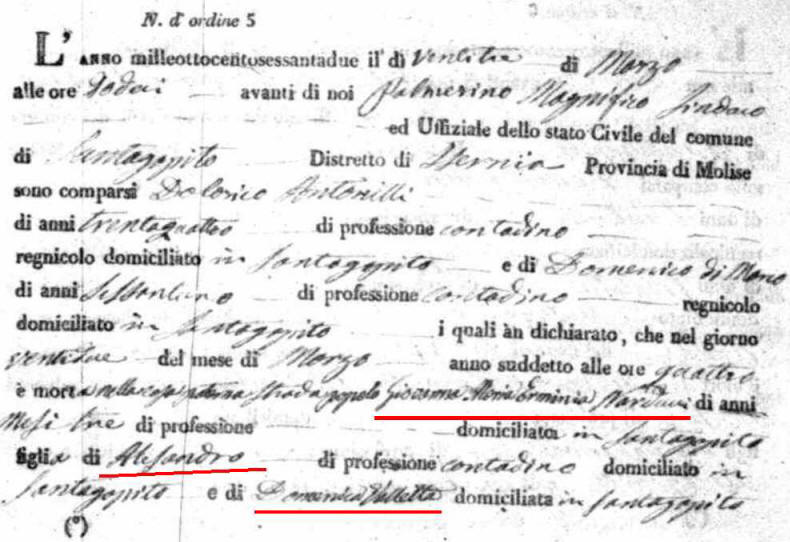 N. d'ordine 5
L'ANNO milleottocentosessantadue il dì ventitre di Marzo
alle ore dodeci avanti di noi Palmerino Magnifico Sindaco
ed Uffiziale dello stato Civile del comune
di Santagapito Distretto di Isernia Provincia di Molise
sono comparsi Antonilli
di anni trentaquattro di professione contadino
regnicolo domiciliato in Santagapito e di Domenico di Marco
di anni Sessantuno di professione contadino regnicolo
domiciliato in Santagapito i quali àn dichiarato, che nel giorno
ventidue del mese di Marzo anno suddetto alle ore quattro
è morta nella casa paterna strada popolo Giovanna Maria Erminia Narducci di anni
Mesi tre di professione domiciliata in Santagapito
figlia di Alesandro di professione contadino domiciliato in
Santagapito e di Domenica Valletta domiciliata in Santagapito
(°)